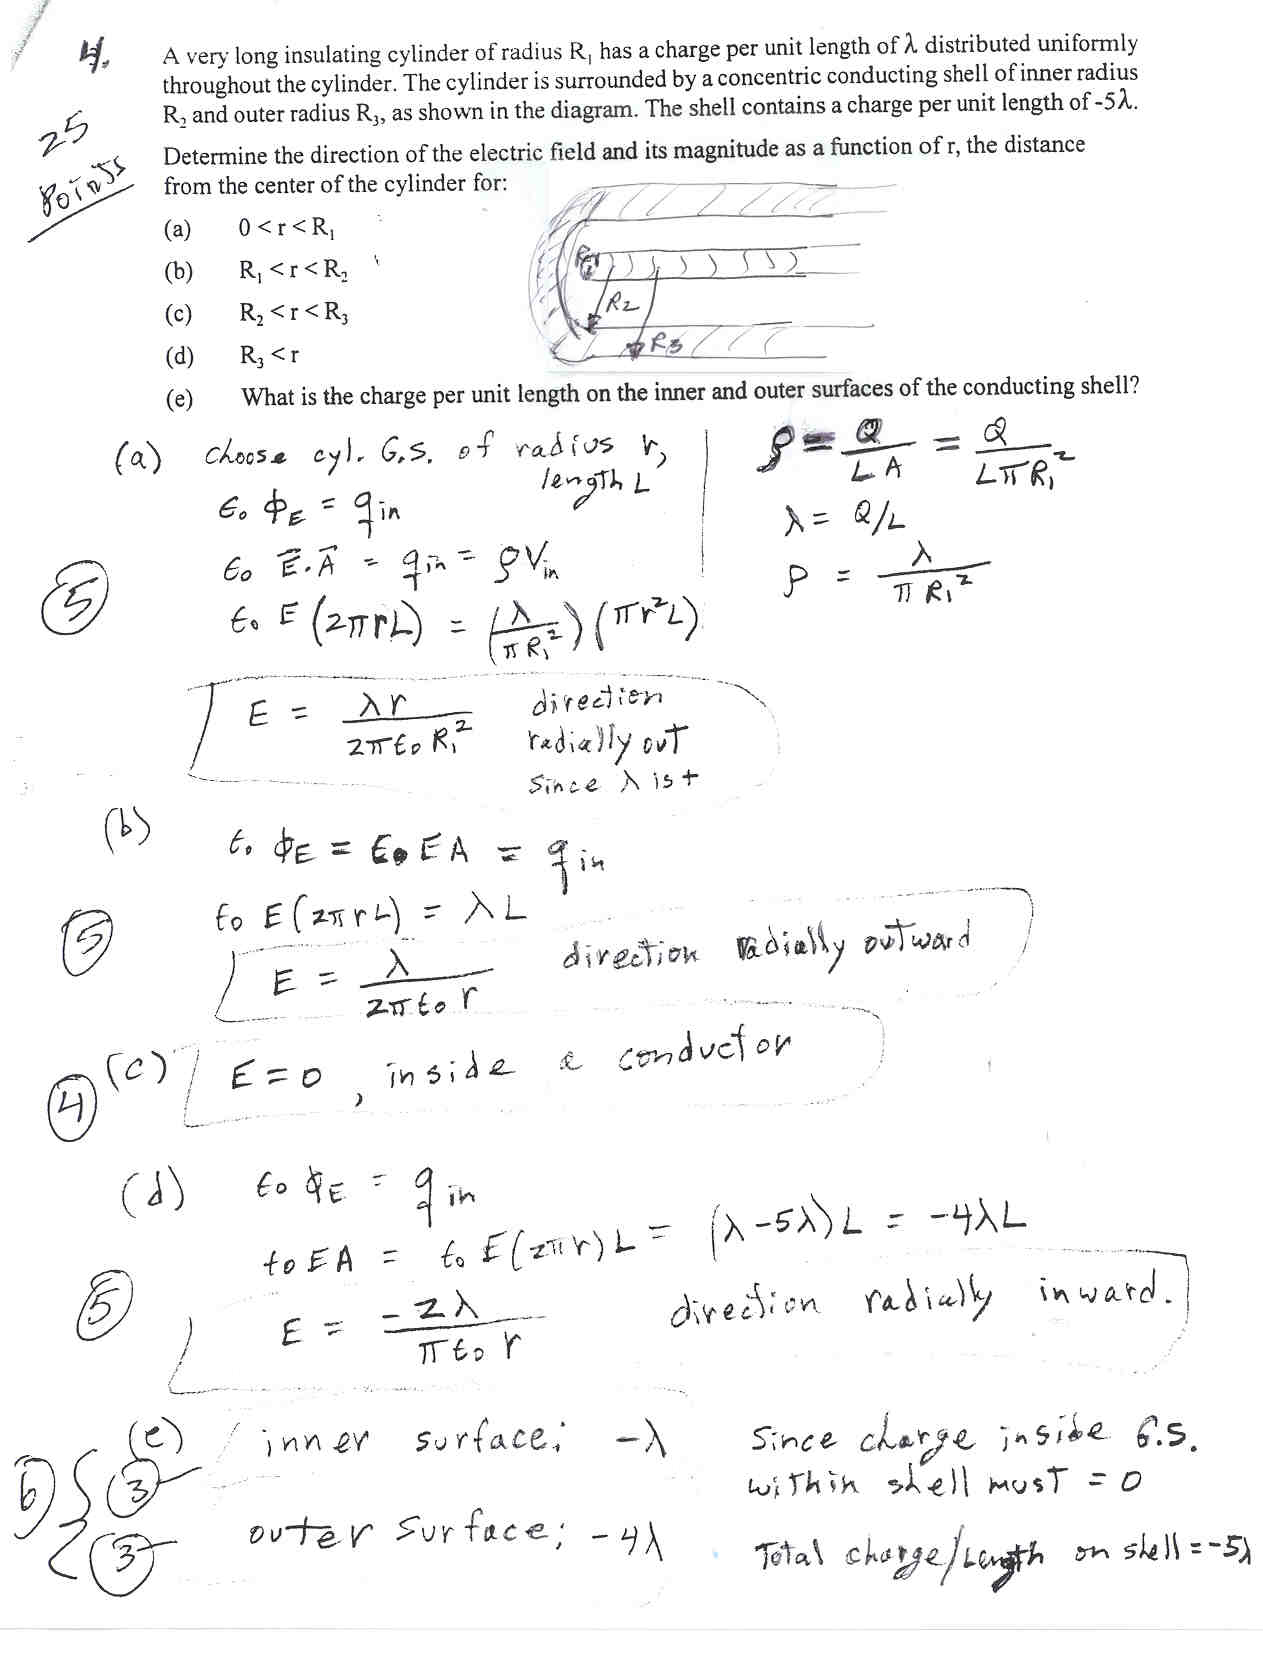 4.
25 Points
A very long insulating cylinder of radius R₁ has a charge per unit length of λ distributed uniformly
throughout the cylinder. The cylinder is surrounded by a concentric conducting shell of inner radius
R₂ and outer radius R₃, as shown in the diagram. The shell contains a charge per unit length of -5λ.
Determine the direction of the electric field and its magnitude as a function of r, the distance
from the center of the cylinder for:
(a) 0 < r < R₁
(b) R₁ < r < R₂
(c) R₂ < r < R₃
(d) R₃ < r
R₁
R2
R3
(e) What is the charge per unit length on the inner and outer surfaces of the conducting shell?
(a) choose cyl. G.S. of radius r,
length L
ϵ₀ ϕ_E = q_in
ϵ₀ E⃗·A⃗ = q_in = ρV_in
ϵ₀ E (2πrL) = (λ/πR₁²)(πr²L)
ρ = Q/LA = Q/LπR₁²
λ = Q/L
ρ = λ/πR₁²
5
E = λr/2πϵ₀R₁² direction
radially out
since λ is +
(b) ϵ₀ ϕ_E = ϵ₀ EA = q_in
ϵ₀ E(2πrL) = λL
5
E = λ/2πϵ₀r direction radially outward
(c) E=0, inside a conductor
4
(d) ϵ₀ ϕ_E = q_in
ϵ₀EA = ϵ₀ E(2πr)L = (λ-5λ)L = -4λL
5
E = -2λ/πϵ₀r direction radially inward.
(e) inner surface; -λ since charge inside G.S.
within shell must = 0
6 3
3
outer surface; -4λ Total charge/Length on shell = -5λ